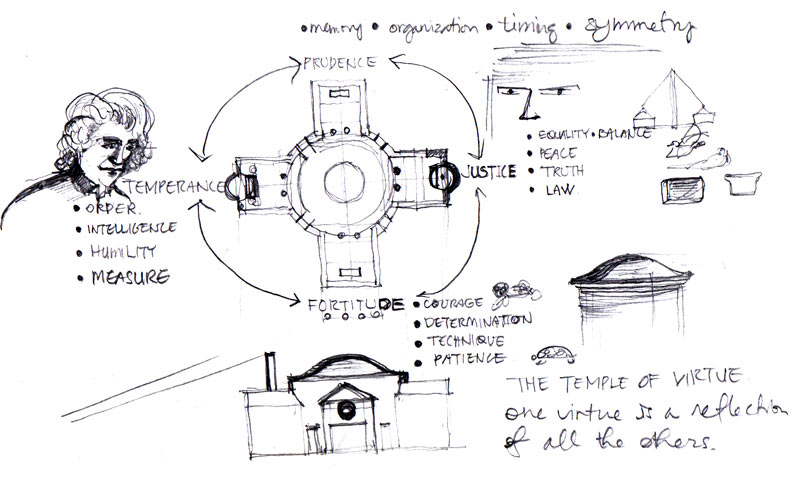 • memory • organization • timing • symmetry
PRUDENCE
TEMPERANCE
• ORDER.
• INTELLIGENCE
• HUMILITY
• MEASURE
JUSTICE
• EQUALITY • BALANCE
• PEACE
• TRUTH
• LAW.
FORTITUDE
• COURAGE
• DETERMINATION
• TECHNIQUE
• PATIENCE
THE TEMPLE OF VIRTUE.
one virtue is a reflection
of all the others.